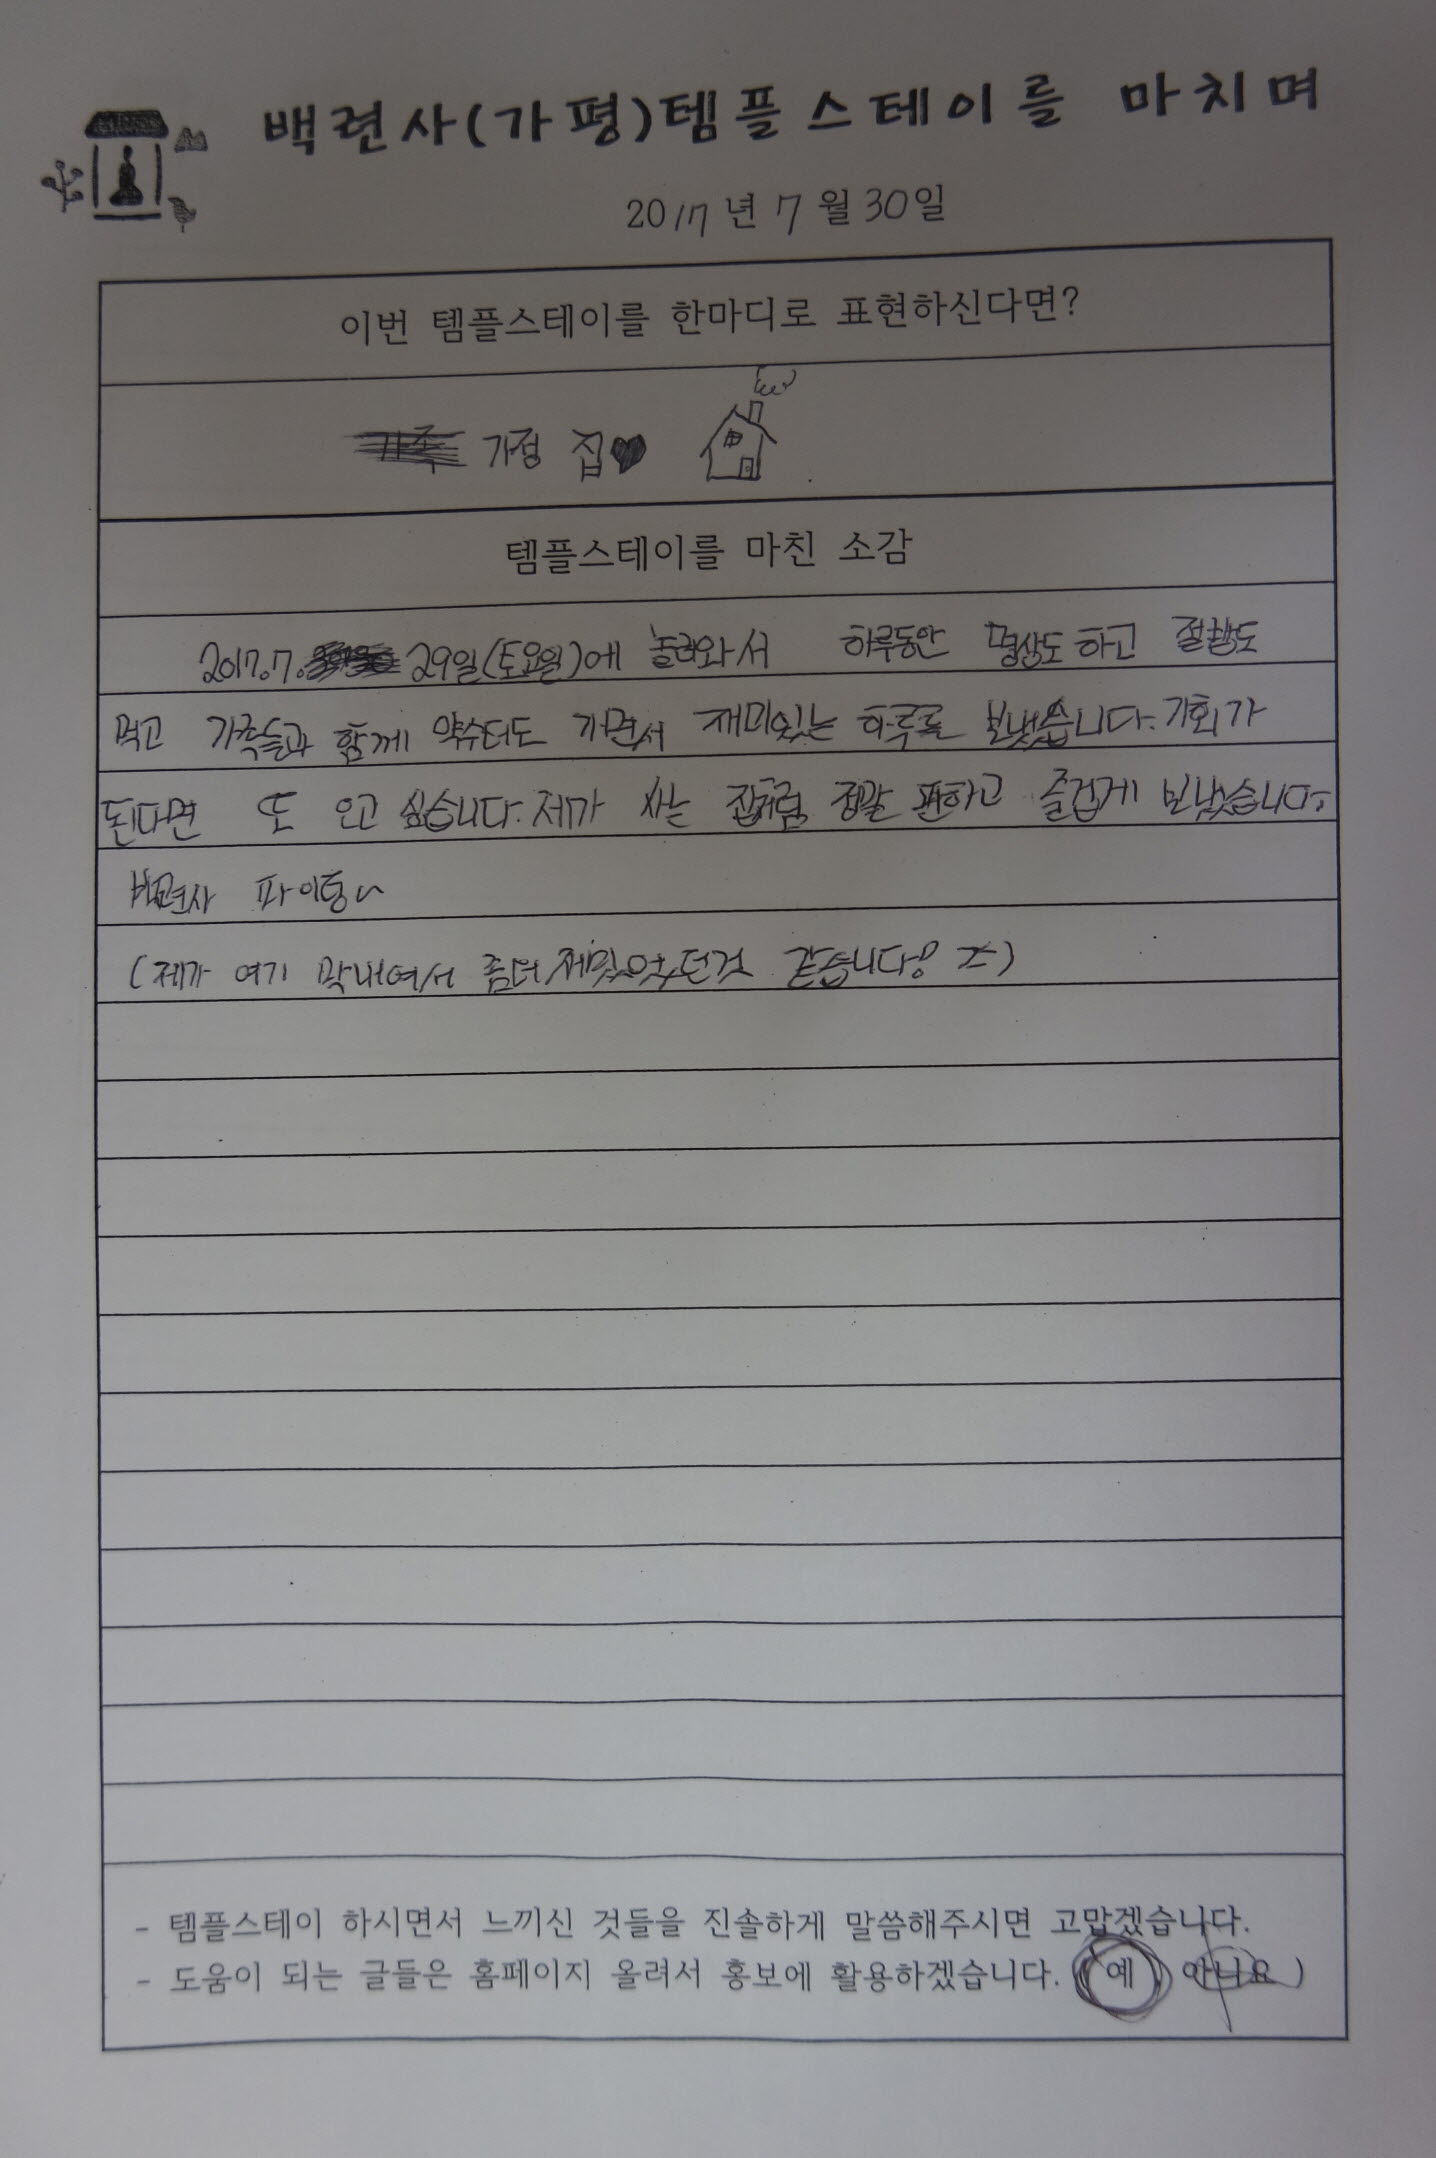 백련사(가평)템플스테이를 마치며
2017년 7월 30일
이번 템플스테이를 한마디로 표현하신다면?
가족 가정 집♥
템플스테이를 마친 소감
2017.7. 29일(토요일)에 놀러와서 하루동안 명상도 하고 절밥도
먹고 가족들과 함께 약수터도 가면서 재미있는 하루를 보냈습니다. 기회가
된다면 또 오고 싶습니다. 제가 사는 집처럼 정말 편하고 즐겁게 보냈습니다.
백련사 파이팅~
(제가 여기 막내여서 좀더 재밌었던것 같습니다!)
- 템플스테이 하시면서 느끼신 것들을 진솔하게 말씀해주시면 고맙겠습니다.
- 도움이 되는 글들은 홈페이지 올려서 홍보에 활용하겠습니다. ( 예 아니요 )